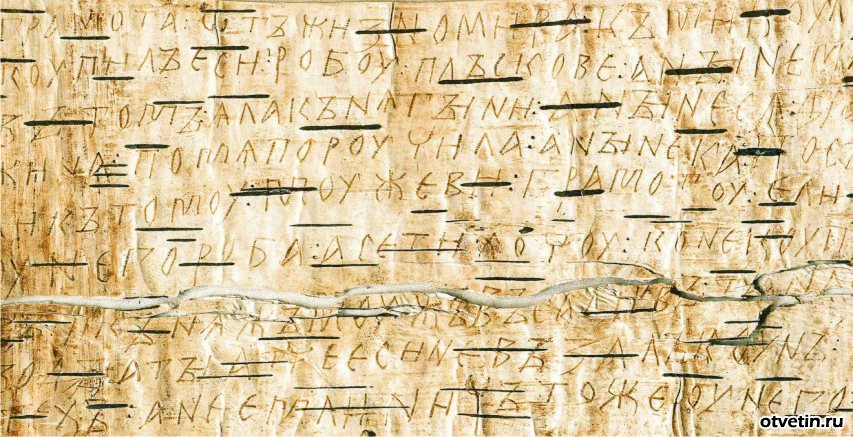 ГРАМОТА : ѠТЪ ЖИЗНОМИРА : КЪ МИКОУЛ
КОУПИЛЪ ЕСИ : РОБОУ : ПЛЪСКОВЕ : А НЫНЕ М
ВЪ ТОМЪ : АЛА КЪНѦГЫНИ : А НЫНЕ СѦ : ДРОУ
ЖИНА : ПО МѦ ПОРОУЧИЛА : А НЫНЕ КА : ПОС
ЛИ КЪ ТОМОУ : МОУЖЕВИ : ГРАМОТОУ : ЕЛИ
ОУ НЕГО РОБА : А СЕ ТИ ХОЧОУ : КОНЕ КОУП
КЪНѦЖЪ МОУЖЪ ВЪСА
АТЧЕ ЕСИ НЕ ВЪЗАЛЪ КОУНЪ
ТЕХЪ : А НЕ ЕМЛИ : НИЧЪТО ЖЕ ОУ НЕГО
otvetin.ru